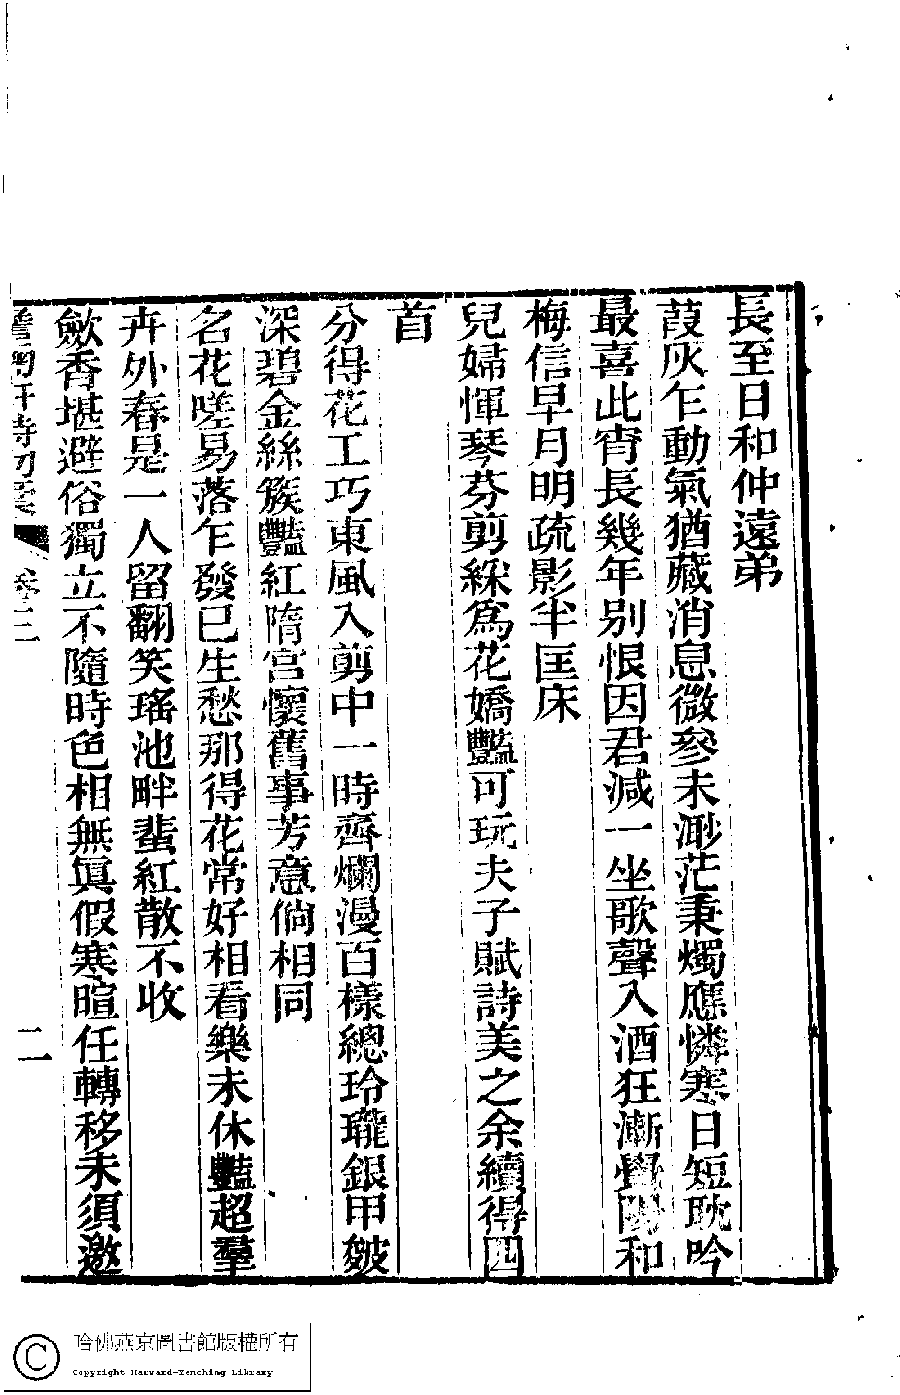 長至日和仲遠弟
葭灰乍動氣猶藏消息微參未渺茫秉燭應憐寒日短耽吟
最喜此宵長幾年別恨因君減一坐歌聲入酒狂漸覺陽和
梅信早月明疏影半匡床
兒婦惲琴芬剪綵爲花嬌豔可玩夫子賦詩美之余續得四
首
分得花工巧東風入剪中一時齊爛漫百樣總玲瓏銀甲皴
深碧金絲簇豔紅隋宮懷舊事芳意倘相同
名花嗟易落乍發已生愁那得花常好相看樂未休豔超羣
卉外春是一人留翻笑瑤池畔蜚紅散不收
歛香堪避俗獨立不隨時色相無眞假寒暄任轉移未須邀
卷二
二
哈佛燕京圖書館版權所有
Copyright Harvard-Yenching Library